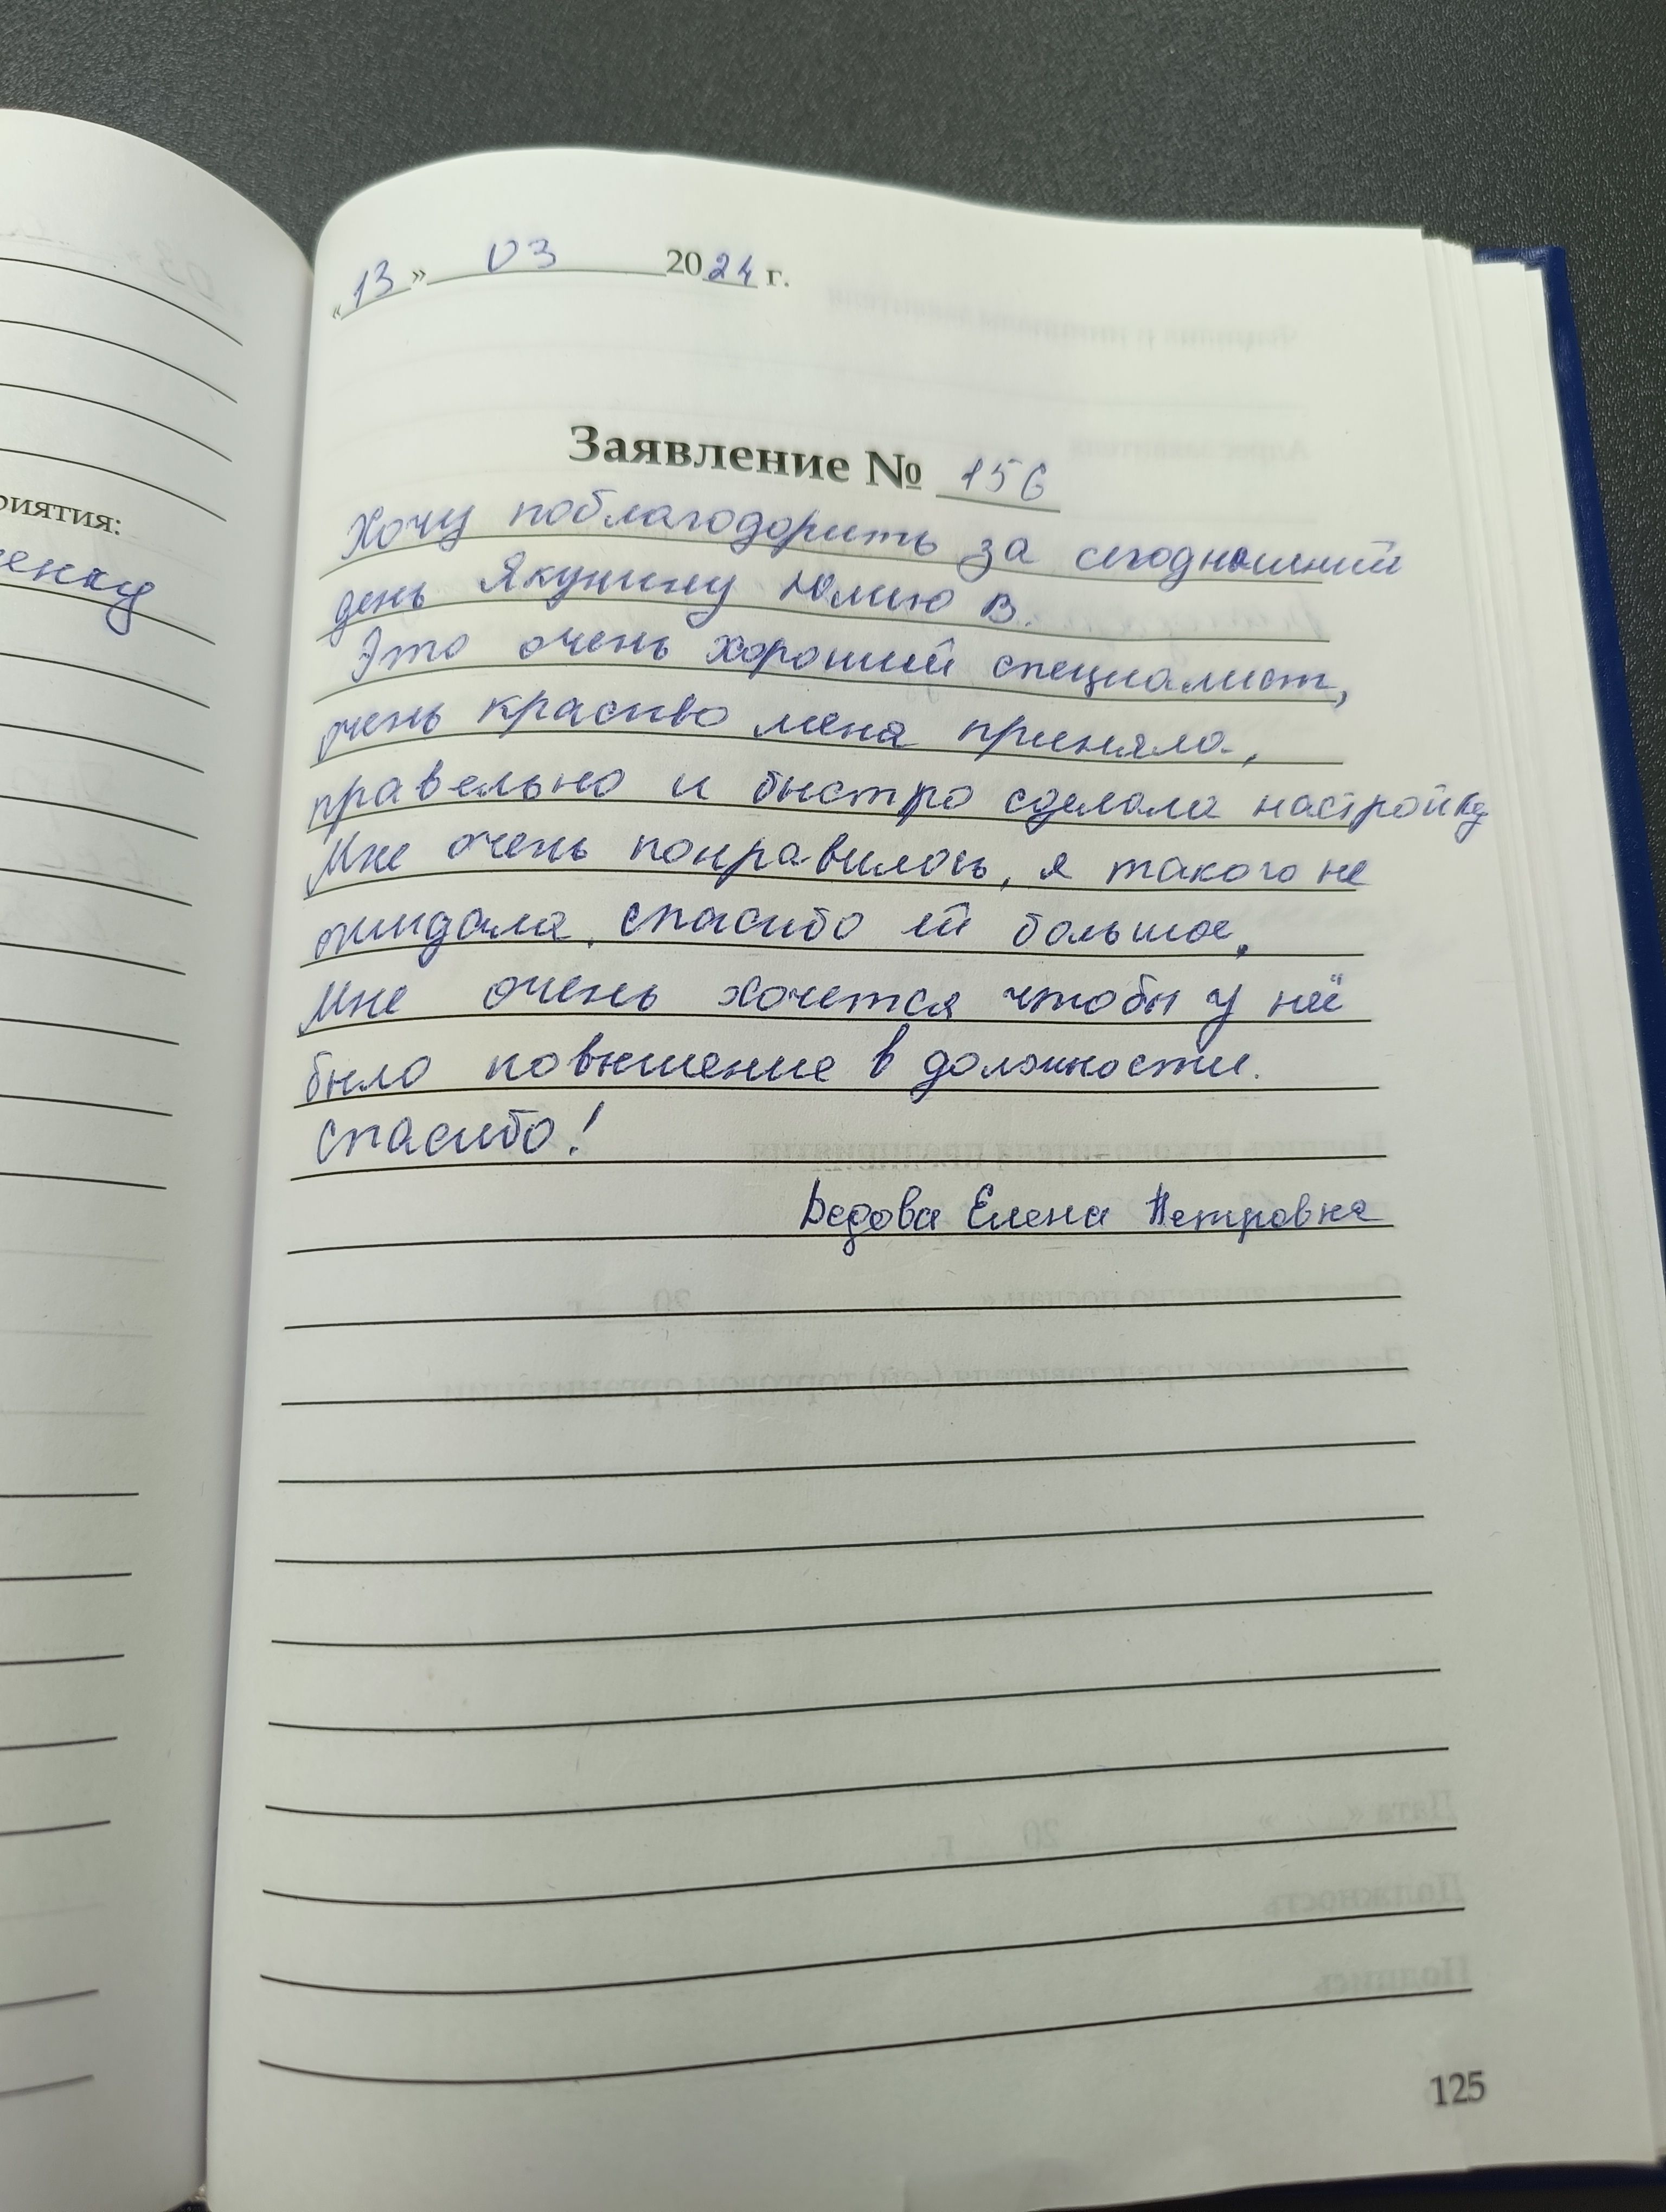 риятия:
енку
«13» 03 2024 г.
Заявление № 156
Хочу поблагодорить за сегодняшний
день Якунину Юлию В.
Это очень хороший специалист,
очень красиво меня приняла,
правельно и быстро сделала настройку
Мне очень понравилось, я такого не
ожидала, спасибо ей большое,
Мне очень хочется чтобы у неё
было повышение в должности.
спасибо!
Дедова Елена Петровна
125